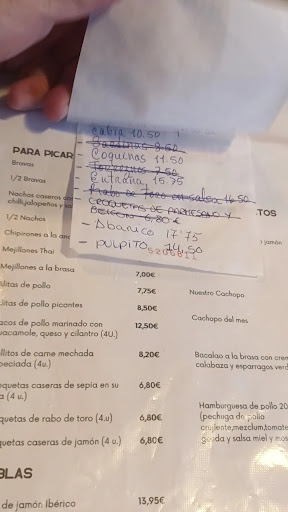 Cabra 10.50
- Sardinas 8.50
- Coquinas 11.50
7.50
- Entraña 15.75
- Rabo de toro en salsa 16.50
- CROQUETAS DE PARMESANO Y
6,80€
- Abanico 17'75
- PULPITO 14,50
5200811
PARA PICAR
Bravas
1/2 Bravas
Nachos caseros co
chilli,jalapeños y
1/2 Nachos
Chipirones a la an
Mejillones Thai
Mejillones a la brasa 7,00€
litas de pollo 7,75€
litas de pollo picantes 8,50€
acos de pollo marinado con 12,50€
uacamole, queso y cilantro (4U.)
llitos de carne mechada 8,20€
peciada (4u.)
oquetas caseras de sepia en su 6,80€
a (4 u.)
quetas de rabo de toro (4.u) 6,80€
quetas caseras de jamón (4 u.) 6,80€
BLAS
de jamón Ibérico 13,95€
TOS
jamón
Nuestro Cachopo
Cachopo del mes
Bacalao a la brasa con crem
calabaza y esparragos verd
Hamburguesa de pollo 20
(pechuga de pollo
crujiente,mezclum,tomate
gouda y salsa miel y mos